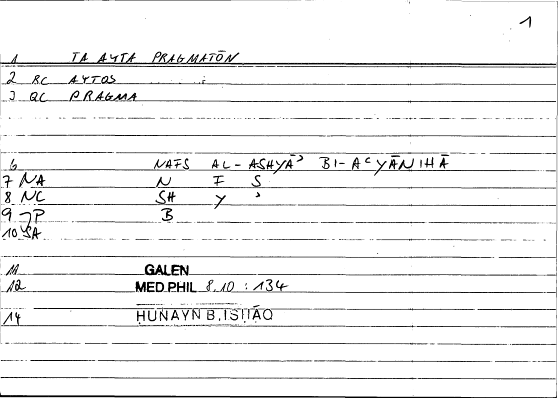 1
1 TA AYTA PRAGMATŌN
2 RC AYTOS
3 QC PRAGMA
6 NAFS AL-ASHYĀʾ BI-AʿYĀNIHĀ
7 NA N F S
8 NC SH Y ʾ
9 ¬P B
10 SA
11 GALEN
12 MED.PHIL 8,10 : 134
14 ḤUNAYN B.ISḤĀQ